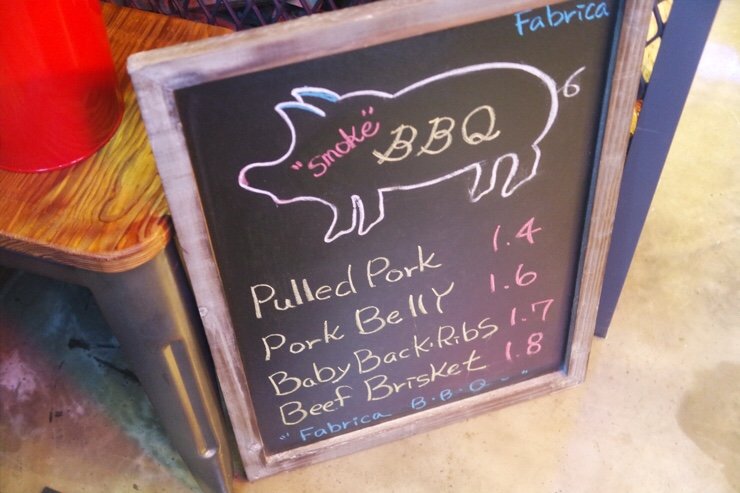 Fabrica
"Smoke" BBQ
Pulled Pork 1.4
Pork Belly 1.6
Baby Back·Ribs 1.7
Beef Brisket 1.8
"Fabrica B·B·Q - "